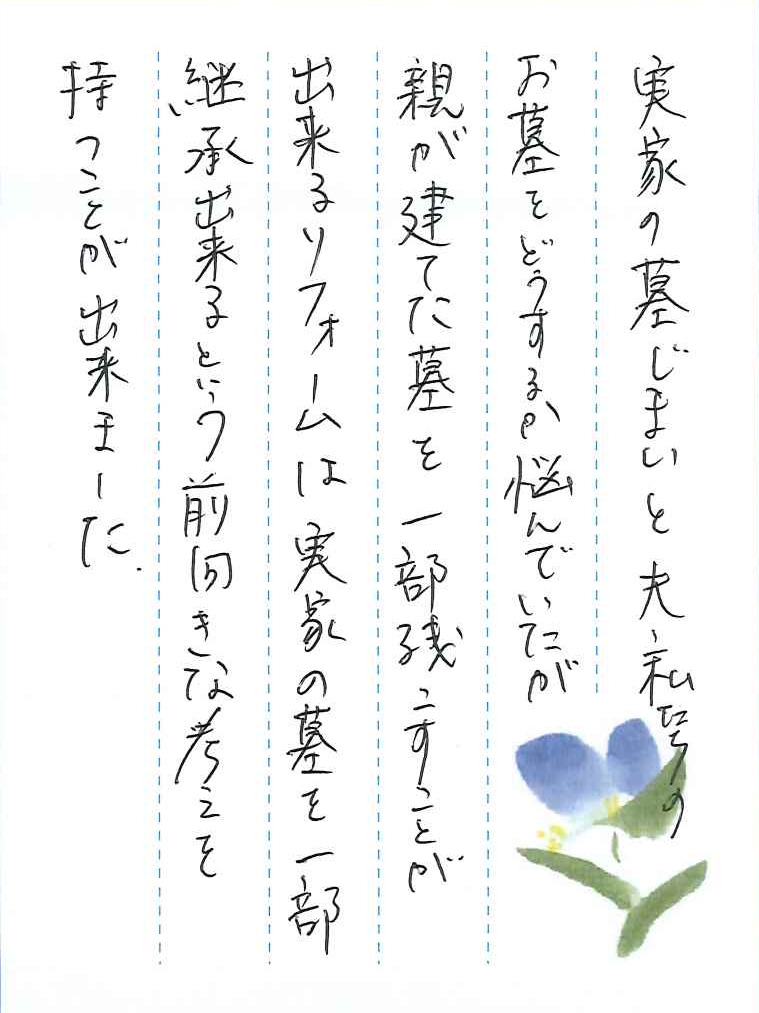 実家の墓じまいと夫、私達の
お墓をどうするか悩んでいたが
親が建てた墓を一部残こすことが
出来るリフォームは実家の墓を一部
継承出来るという前向きな考えを
持つことが出来ました.